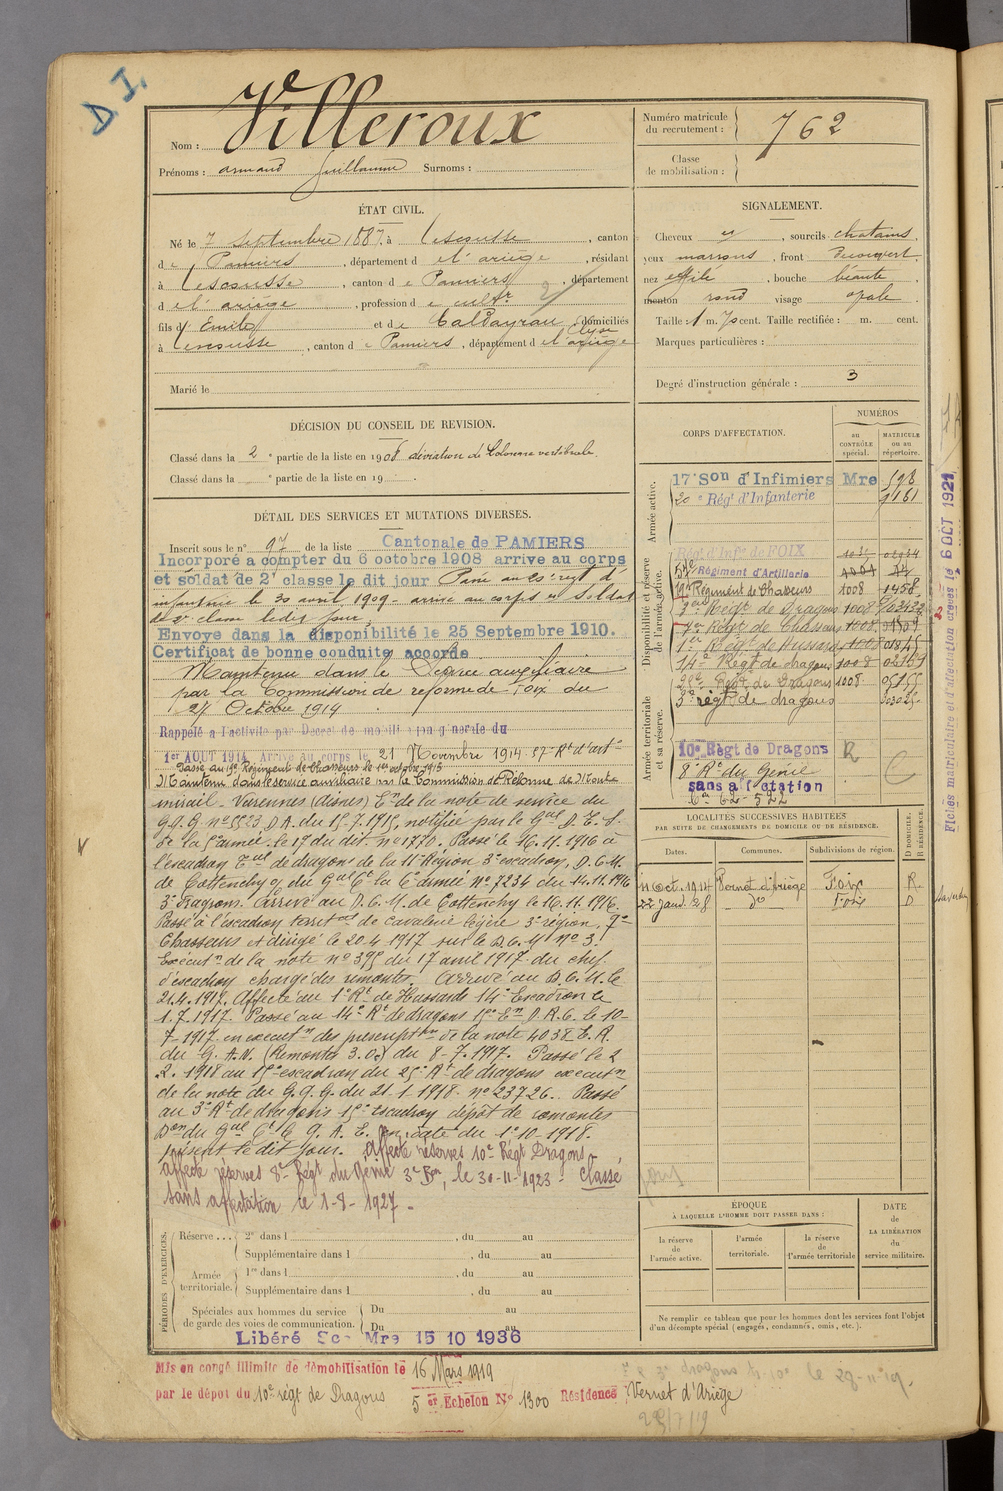 D I.
Villeroux
Nom :
Prénoms : armand Guillaume Surnoms :
Numéro matricule du recrutement : 762
Classe de mobilisation :
ÉTAT CIVIL.
Né le 7 Septembre 1887, à Lescousse, canton
de Pamiers, département de l'ariège, résidant
à Lescousse, canton de Pamiers, département
de l'ariège, profession de cultr
fils d'Emile et de Caldayrau Elyse, domiciliés
à Lescousse, canton de Pamiers, département de l'ariège
Marié le
SIGNALEMENT.
Cheveux et, sourcils chatains,
yeux marrons, front découvert,
nez effilé, bouche béante,
menton rond visage opale
Taille 1 m. 70 cent. Taille rectifiée : m. cent.
Marques particulières :
Degré d'instruction générale : 3
DÉCISION DU CONSEIL DE REVISION.
Classé dans la 2e partie de la liste en 1908 déviation de Colonne vertébrale.
Classé dans la e partie de la liste en 19 .
DÉTAIL DES SERVICES ET MUTATIONS DIVERSES.
Inscrit sous le n° 97 de la liste Cantonale de PAMIERS
Incorporé à compter du 6 octobre 1908 arrive au corps
et soldat de 2e classe le dit jour Passé au
infanterie le 30 avril 1909 - arrivé au corps et Soldat
de 2e classe ledit jour,
Envoye dans la disponibilité le 25 Septembre 1910.
Certificat de bonne conduite accordé
Maintenu dans le Service auxiliaire
par la Commission de réforme de Foix du
24 Octobre 1914
Rappelé à l'activité par Decret de mobilisation générale du
1er AOUT 1914 Arrivé au corps le 21 Novembre 1914 57e Rt d'artie
Passé au 19e Régiment de Chasseurs le 1er octobre 1915
Maintenu dans le service auxiliaire par la Commission de Réforme de Mont
mirail - Varennes (Aisnes) En de la note de service du
G.Q.G. n° 5523 DA. du 15-7-1915, notifiée par le Gal D. E. S.
de la 5e armée le 17 du dit. n° 1770. Passé le 16.11.1916 à
l'escadron Teral de dragons de la 11e Région 3e escadron, D.C.M.
de Cottenchy o/ du Gal Ct la 6e armée N° 7234 du 14.11.1916
3e Dragons. Arrivé au D.C.M. de Cottenchy le 16.11.1916.
Passé à l'escadron territal de cavalerie légère 3e région, 7e
Chasseurs et dirigé le 20-4-1917 sur le D.C.M n° 3.
Exécutn de la note n° 395 du 17 avril 1917 du chef
d'escadron chargé des remontes. Arrivé au D.C.M. le
21.4.1917. Affecté au 1e Rt de Hussards 14e Escadron le
1.7.1917. Passé au 14e Rt de dragons 15e En D.A.C. le 10-
7-1917 en executn des prescriptons de la note 4038 E.R.
du G.A.N. (Remonte 3.02) du 8-7.1917. Passé le 2
2.1918 au 15e escadron du 25e Rt de dragons executn
de la note du G.Q.G. du 21.1.1918. n° 23726. Passé
au 3e Rt de dragons 15e escadron dépôt de remontes
Don du Gal Ct le G.A.E. en date du 1e-10-1918.
présent le dit jour. Affecté réserves 10e Régt Dragons -
affecté réserves 8e Régt du Génie 3e Bon, le 30-11-1923 - Classé
sans affectation le 1-8-1927 -
CORPS D'AFFECTATION.
NUMÉROS
au CONTRÔLE spécial.
MATRICULE ou au répertoire.
Armée active.
17e Son d'Infirmiers Mre 598
20e Régt d'Infanterie 4161
Disponibilité et réserve de l'armée active.
Régt d'Infie de FOIX
57e Régiment d'Artillerie
19e Régiment de Chasseurs 1008 1458
Régt de Dragons 1008
7e Régt de Chasseurs 1008
1er Régt de Hussards 1008
14e Régt de dragons 1008 02159
25e Régt de Dragons 1008
3e régt de dragons
Armée territoriale et sa réserve.
10e Régt de Dragons R
8e Rt du Génie C
sans affectation
LOCALITÉS SUCCESSIVES HABITÉES
PAR SUITE DE CHANGEMENTS DE DOMICILE OU DE RÉSIDENCE.
Dates. Communes. Subdivisions de région. D DOMICILE. R RÉSIDENCE.
11 Oct. 1914 Vernet d'Ariège Foix R.
22 Janv. 28 do Foix D
Saverdun
Fiches matriculaire et d'affectation créées le 6 OCT 1921
ÉPOQUE
À LAQUELLE L'HOMME DOIT PASSER DANS :
la réserve de l'armée active.
l'armée territoriale.
la réserve de l'armée territoriale
DATE de LA LIBÉRATION du service militaire.
Ne remplir ce tableau que pour les hommes dont les services font l'objet
d'un décompte spécial (engagés, condamnés, omis, etc.).
PÉRIODES D'EXERCICES.
Réserve ... 2e dans l , du au
Supplémentaire dans l , du au
Armée territoriale. 1re dans l , du au
Supplémentaire dans l , du au
Spéciales aux hommes du service Du au
de garde des voies de communication. Du au
Libéré Sce Mre 15 10 1936
Mis en congé illimité de démobilisation le 16 Mars 1919
par le dépôt du 10e régt de Dragons 5 er Echelon N° 1300 Résidence Vernet d'Ariège